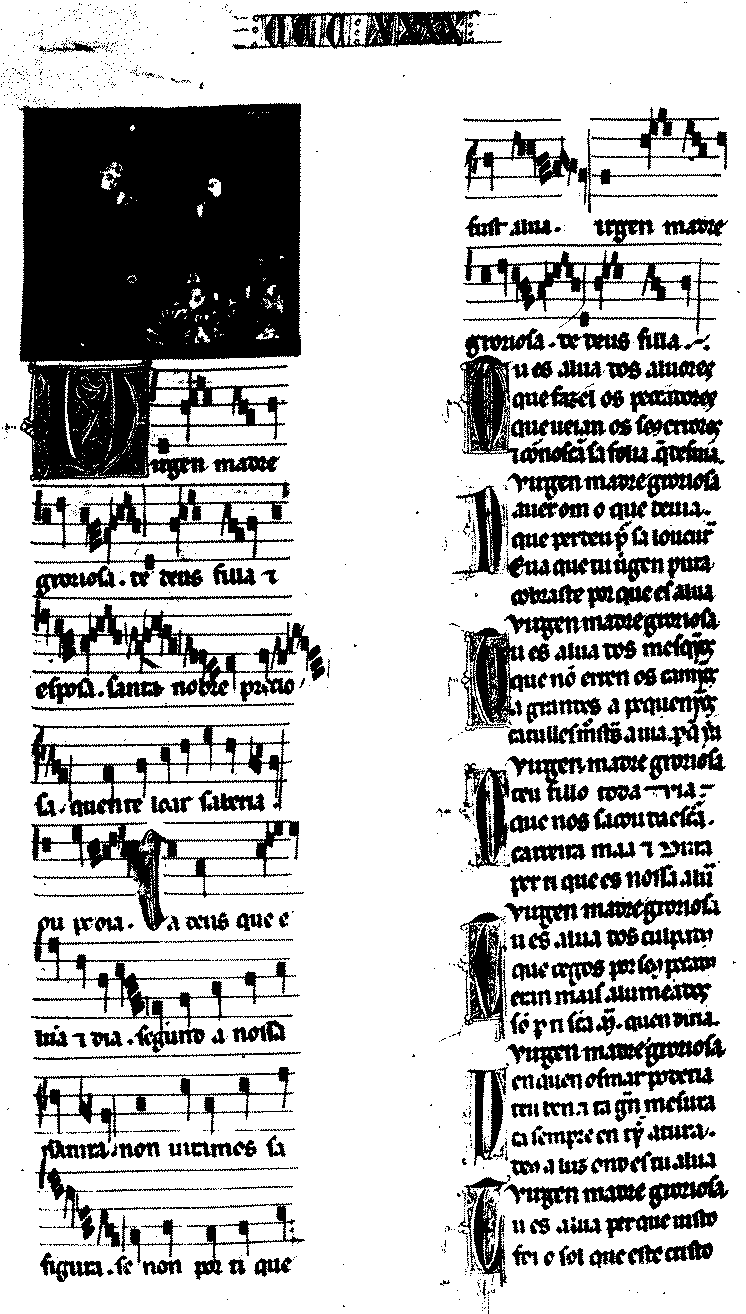 CCC XXX
Virgen madre
groriosa . de deus filla ⁊
esposa . santa nobre precio
sa . quen te loar saberia .
ou podia . Ca deus que e
lum ⁊ dia . segund a nossa
natura . non uiramos sa
figura . se non por ti que
fust alua . uirgen madre
groriosa . de deus filla .
Tu es alua dos aluores
que fazes os pecadores
que ueian os seus errores
⁊ connoscã sa folia . q̃ desuia .
Virgen madre groriosa
d auer om o que deuia .
que perdeu p̃ sa loucura
Eua que tu uirgen pura
cobraste por que es alua
Virgen madre groriosa
Tu es alua dos mesquỹos
que nõ erren os camỹos
a grandes a pequenỹos
ca tu lles mostras a uia . per q̃
Virgen madre groriosa
de teu fillo toda uia
que nos sacou da escura .
carreira maa ⁊ dura
per ti que es nossa alua
Virgen madre groriosa
Tu es alua dos culpados
que cegos por seus pecados
eran mais alumeados
sõ p̃ ti sca . M̃ . quen diria .
Virgen madre groriosa
nen quen osmar poderia
teu ben . ⁊ ta gñ mesura
ca sempre en tỹ atura .
deus a luz onde es tu alua
Virgen madre groriosa
Tu es alua per que uisto
foi o sol que este cristo